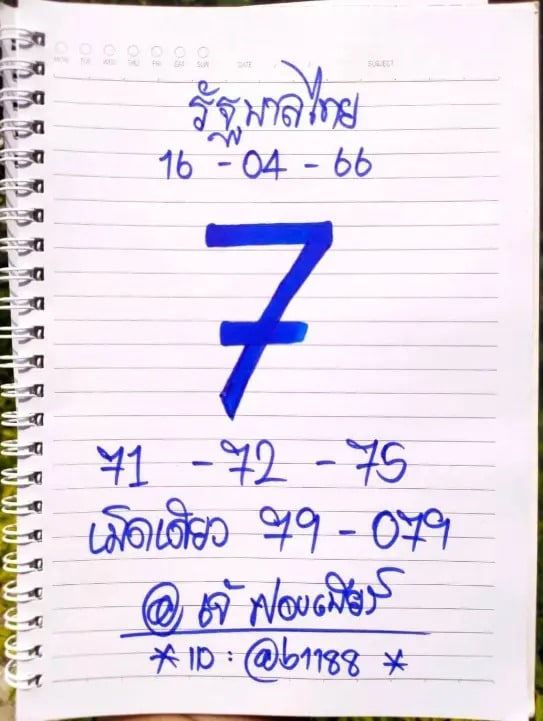 MON TUE WED THU FRI SAT SUN DATE SUBJECT
รัฐบาลไทย
16 - 04 - 66
7
71 - 72 - 75
เม็ดเดียว 79 - 079
@ เจ้
* ID : @b1188 *